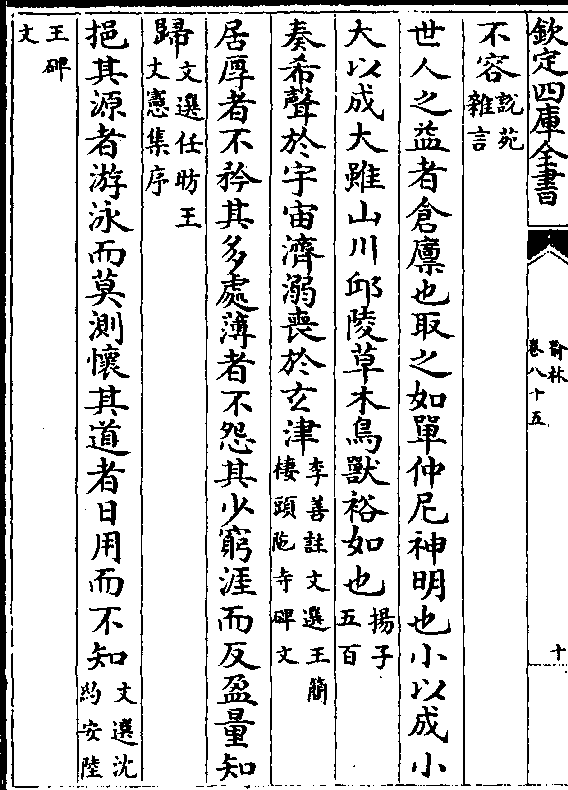 欽定四庫全書
喻林
卷八十五
十
不容說苑
雜言
世人之益者倉廩也取之如單仲尼神明也小以成小
大以成大雖山川邱陵草木鳥獸裕如也揚子
五百
奏希聲於宇宙濟溺喪於玄津李善註文選王簡
棲頭陁寺碑文
居厚者不矜其多處薄者不怨其少窮涯而反盈量知
歸文選任昉王
文憲集序
挹其源者游泳而莫測懷其道者日用而不知文選沈
約安陸
王碑
文